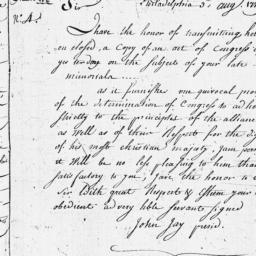 Sir Philadelphia 5 Aug
No. 4.
I have the honor of transmitting he
en closed, a Copy of an act of Congress
yesterday on the subjects of your late
memorials
as it furnishes une quivocal proo
of the determination of Congress to adhe
strictly to the principles of the allianc
as Well as of their Respect for the di
of his most christian majesty, I am per
it Will be no less pleasing to him than
satis factory to you, I are the honor to
Sir With great Respect & Esteem your
obedient and very hble Servant signed
John Jay presid.